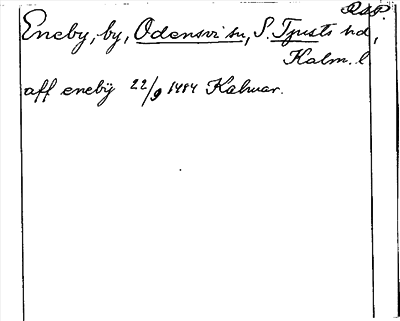 RAP.
Eneby, by, Odensvi sn, S. Tjusts hd,
Kalm. l
aff enebÿ 22/9 1484 Kalmar.